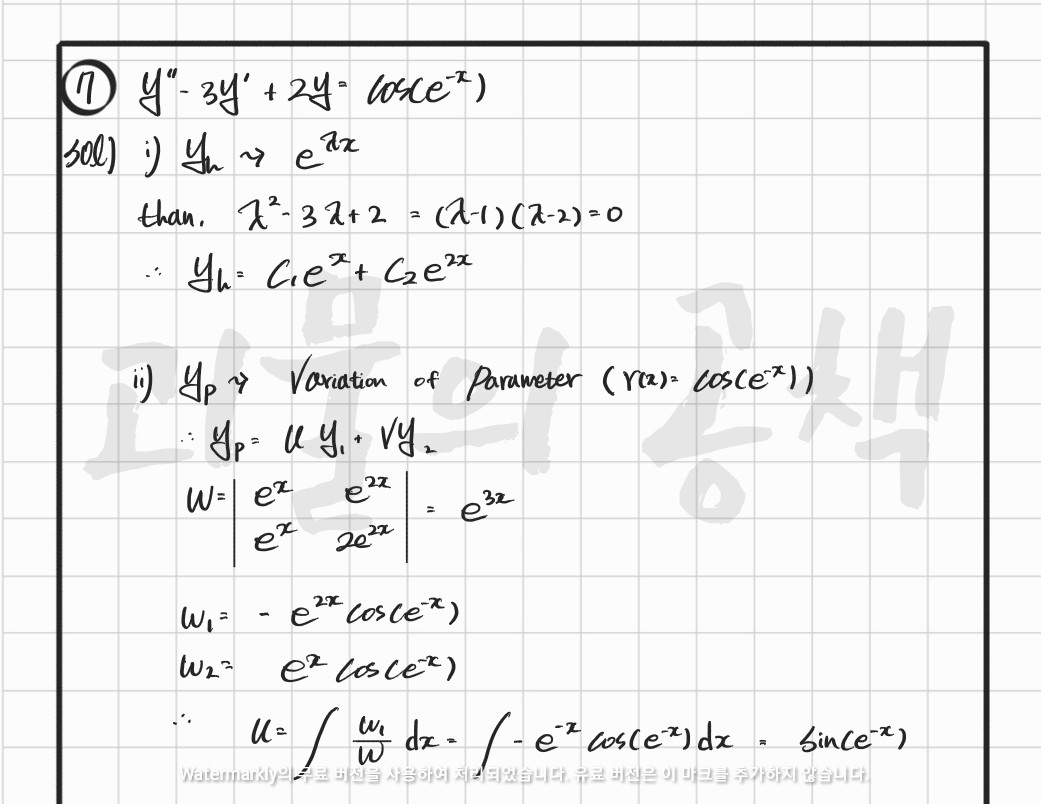 ⑦ y'' - 3y' + 2y = cos(e^{-x})
sol) i) y_h ⤳ e^{λx}
than. λ² - 3λ + 2 = (λ-1)(λ-2) = 0
∴ y_h = C₁e^x + C₂e^{2x}
ii) y_p ⤳ Variation of Parameter (r(x) = cos(e^{-x}))
∴ y_p = u y₁ + v y₂
W = | e^x e^{2x} | = e^{3x}
| e^x 2e^{2x} |
W₁ = - e^{2x} cos(e^{-x})
W₂ = e^x cos(e^{-x})
∴ u = ∫ W₁/W dx = ∫ - e^{-x} cos(e^{-x}) dx = sin(e^{-x})
괴물의 공책
Watermarkly의 무료 버전을 사용하여 처리되었습니다. 유료 버전은 이 마크를 추가하지 않습니다.